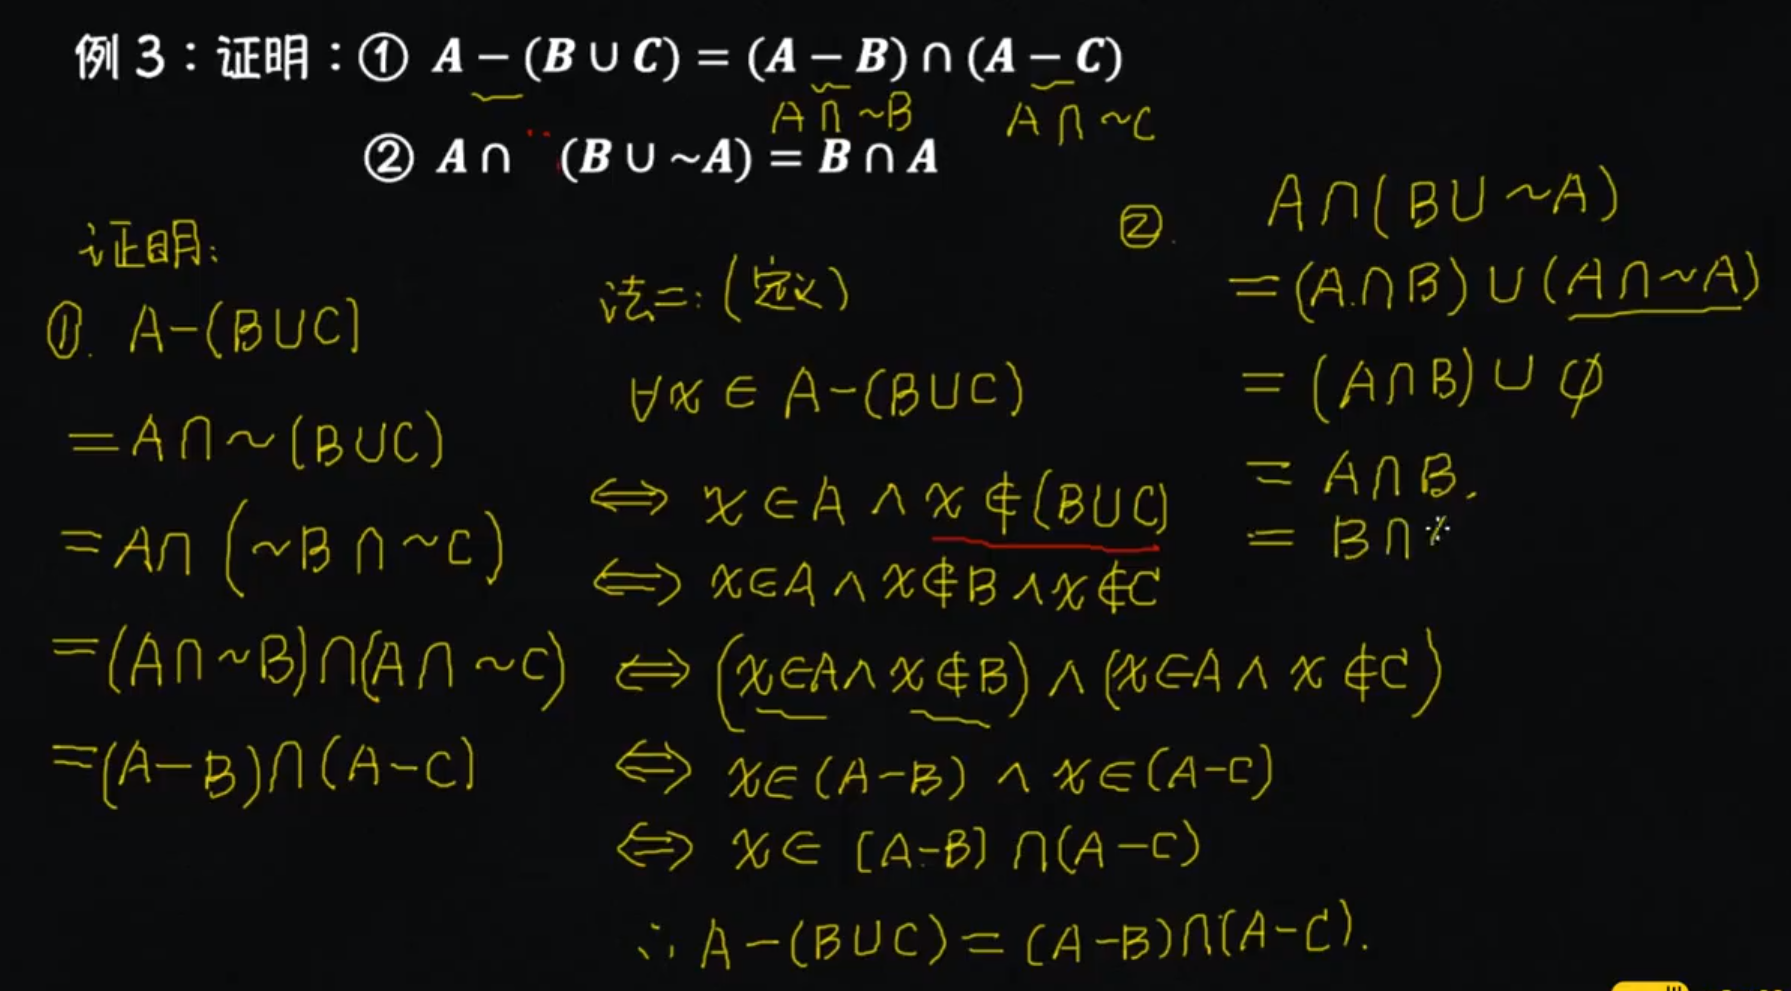 例 3：证明：① A − (B ∪ C) = (A − B) ∩ (A − C)
A∩~B A∩~C
② A ∩ (B ∪ ~A) = B ∩ A
证明:
①. A-(B∪C)
=A∩~(B∪C)
=A∩(~B∩~C)
=(A∩~B)∩(A∩~C)
=(A-B)∩(A-C)
法二:(定义)
∀x∈A-(B∪C)
⇔ x∈A∧x∉(B∪C)
⇔ x∈A∧x∉B∧x∉C
⇔ (x∈A∧x∉B)∧(x∈A∧x∉C)
⇔ x∈(A-B)∧x∈(A-C)
⇔ x∈[A-B]∩(A-C)
∴ A-(B∪C)=(A-B)∩(A-C).
②. A∩(B∪~A)
=(A∩B)∪(A∩~A)
=(A∩B)∪∅
=A∩B.
=B∩